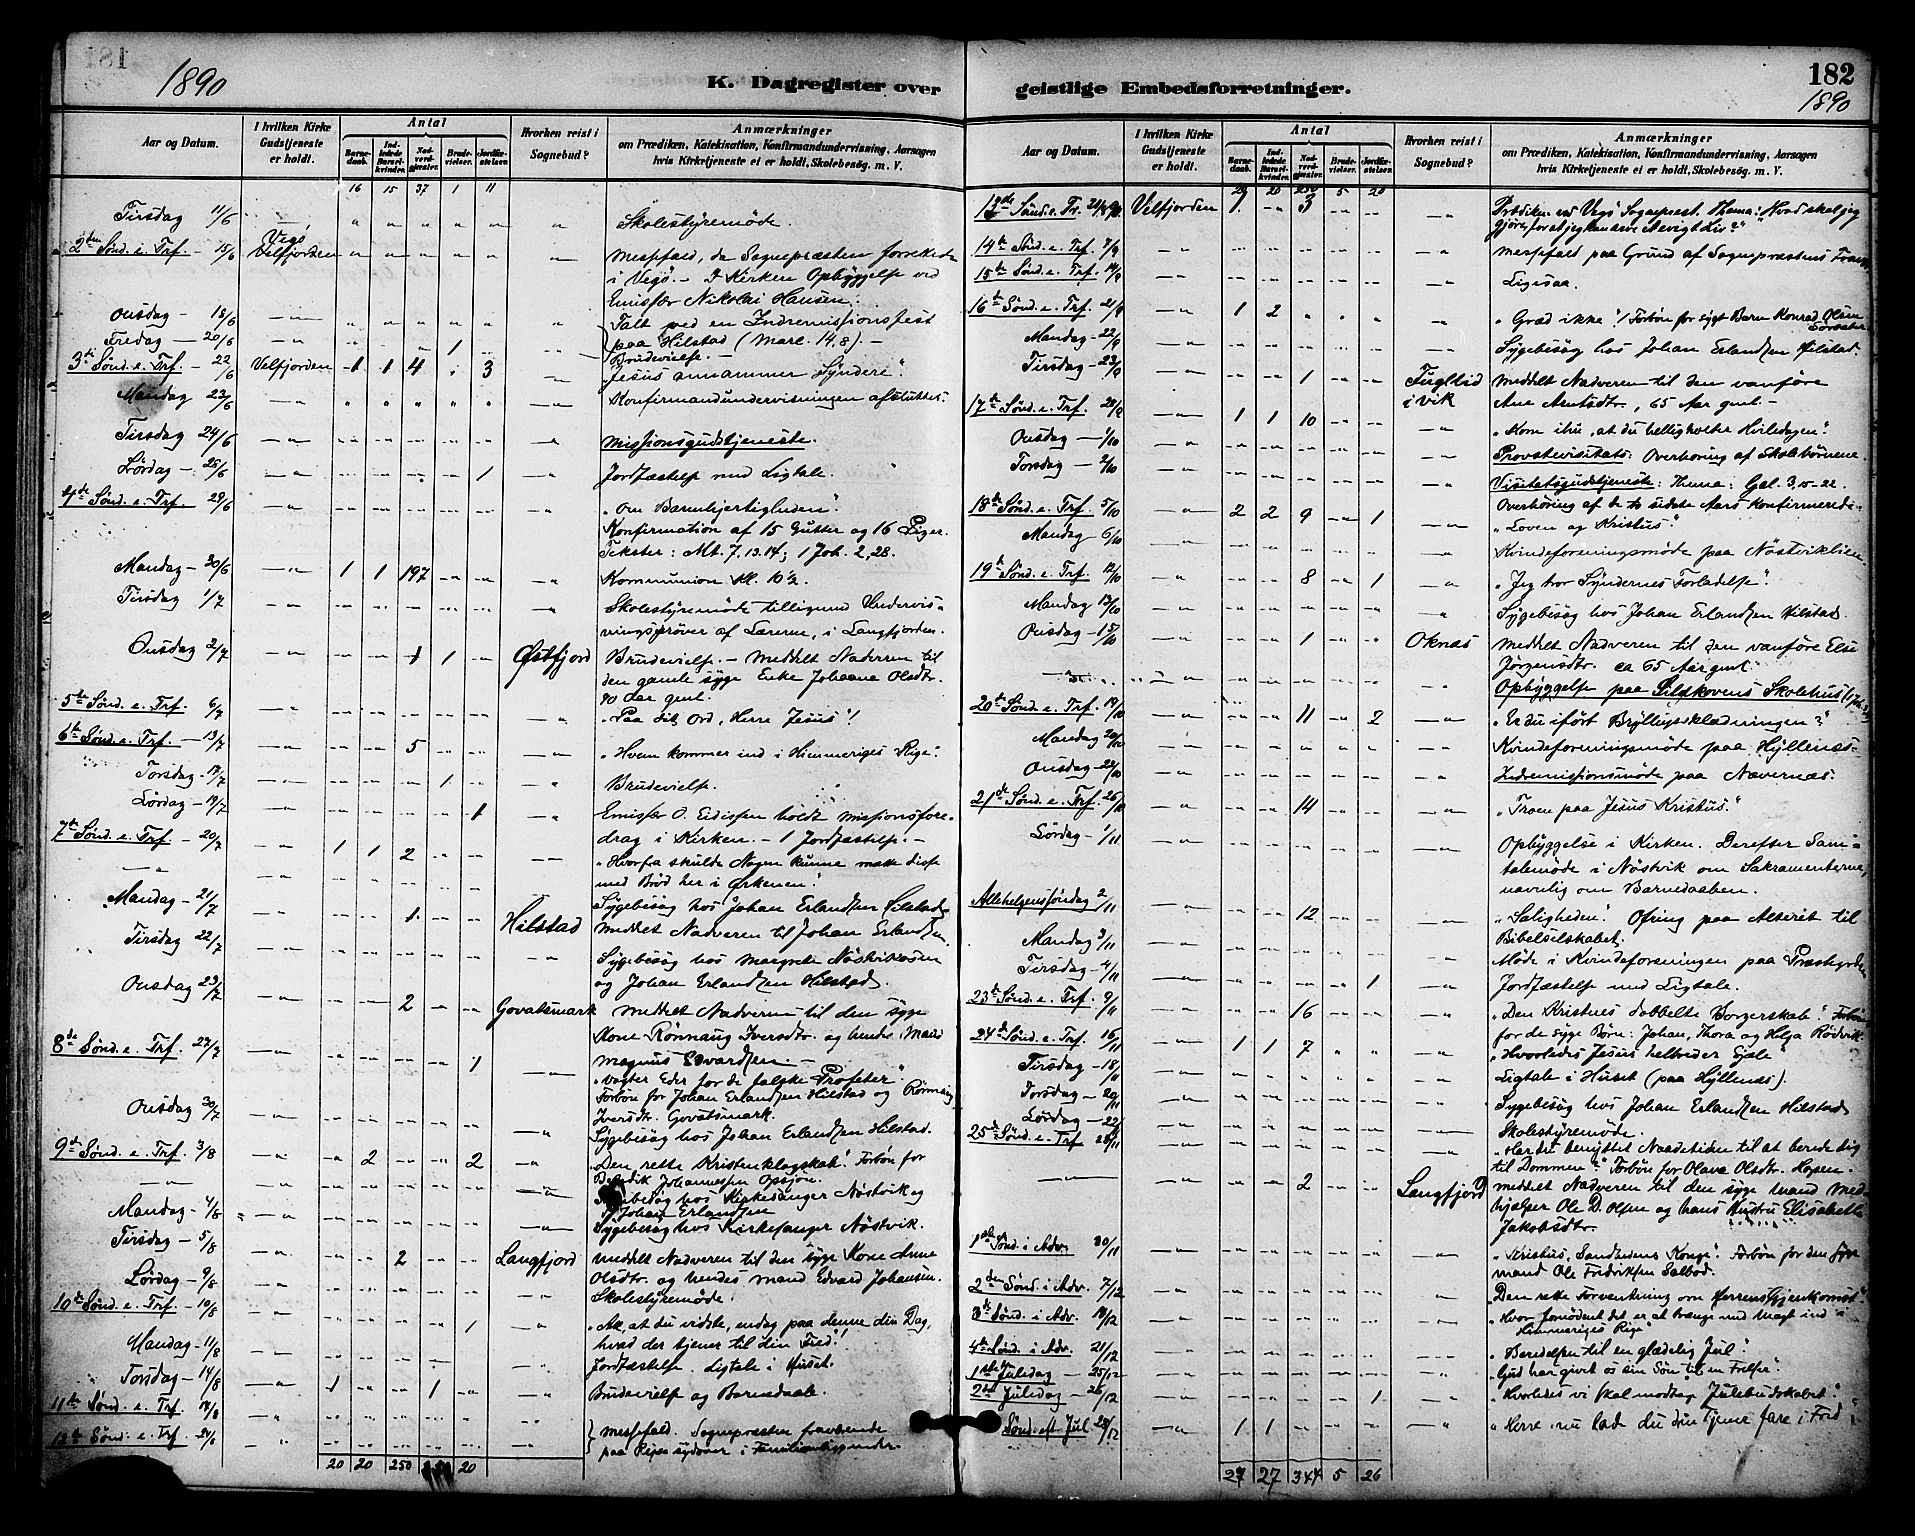 1890
K. Dagregister over
Aar og Datum.
I hvilken Kirke Gudstjeneste er holdt.
Antal
Barnedaab.
Indledede Barselkvinder.
Nadverdgjæster.
Brudevielser.
Jordfæstelser.
Hvorhen reist i Sognebud?
Anmærkninger
om Prædiken, Katekisation, Konfirmandundervisning, Aarsagen
hvis Kirketjeneste ei er holdt, Skolebesøg. m. V.
16 15 37 1 11
Tirsdag 11/6 Skolestyremøde.
2den Sønd. e. Trf. 15/6 Vegø Velfjorden Messefald, da Sognepræsten forrettede
i Vegø. I Kirken Opbyggelse ved
Emissær Nikolai Hansen.
Onsdag 18/6 Talt ved en Indremissionsfest
Fredag 20/6 1 paa Hilstad (Marc. 14.8).
Brudevielse.
3de Sønd. e. Trf. 22/6 Velfjorden 1 1 4 3 "Jesus annammer Syndere".
Mandag 23/6 Konfirmandundervisningen afsluttes.
Tirsdag 24/6 Missionsgudstjeneste.
Lørdag 1 Jordfæstelse med Ligtale.
4de Sønd. e. Trf. 29/6 "Om Barmhjertigheden".
Konfirmation af 15 Gutter og 16 Piger.
Tekster: Mt. 7.13.14; 1 Joh. 2,28.
Mandag 30/6 1 1 197 Kommunion kl. 10½.
Tirsdag 1/7 Skolestyremøde tilligemed Undervisningsprøver
af Lærerne, i Langfjorden.
Onsdag 2/7 1 1 Østfjord Brudevielse. Meddelt Nadveren til
den gamle syge Enke Johanna Olsdtr.
90 Aar gml.
5te Sønd. e. Trf. 6/7 "Paa dit Ord, Herre Jesus"!
6te Sønd. e. Trf. 13/7 5 "Hvem kommer ind i Himmeriges Rige".
Torsdag 17/7 1 Brudevielse.
Lørdag 19/7 1 Emissær O. Eidissen holdt Missionsforedrag
i Kirken. 1 Jordfæstelse.
7de Sønd. e. Trf. 20/7 1 1 2 "Hvorfra skulde Nogen kunne mætte disse
med Brød her i Ørkenen".
Sygebesøg hos Johan Erlandsen Hilstad.
Mandag 21/7 1 Hilstad Meddelt Nadveren til Johan Erlandsen.
Tirsdag 22/7 Sygebesøg hos Margrete Nøstvik
og Johan Erlandsen Hilstad.
Onsdag 23/7 2 Govatsmark Meddelt Nadveren til den syge
Kone Rønnaug Iversdtr. og hendes Mand
Magnus Edvardsen.
8de Sønd. e. Trf. 27/7 1 "Vogter Eder for de falske Profeter"
Forbøn for Johan Erlandsen Hilstad og Rønnaug
Iversdtr. Govatsmark.
Onsdag 30/7 Sygebesøg hos Johan Erlandsen Hilstad.
9de Sønd. e. Trf. 3/8 2 2 "Den rette Kristenklogskab". Forbøn for
Johannessen
Sygebesøg hos Kirkesanger Nøstvik og
Johan Erlandsen
Mandag 4/8 Sygebesøg hos Kirkesanger Nøstvik.
Tirsdag 5/8 2 Langfjord Meddelt Nadveren til den syge Kone Anne
Olsdtr. og hendes Mand Edvard Johansen.
Lørdag 9/8 Skolestyremøde.
10de Sønd. e. Trf. 10/8 1 "Ak, at du vidste, endog paa denne din Dag,
hvad der tjener til din Fred"!
Mandag 11/8 Jordfæstelse. Ligtale i Huset.
Torsdag 14/8 1 1 Brudevielse og Barnedaab.
11te Sønd. e. Trf. Messefald. Sognepræsten fraværende
12te Sønd. e. Trf. 24/8 paa Reise sydover i Familieanliggender.
20 20 250 20
geistlige Embedsforretninger.
182
1890
Aar og Datum.
I hvilken Kirke Gudstjeneste er holdt.
Antal
Barnedaab.
Indledede Barselkvinder.
Nadverdgjæster.
Brudevielser.
Jordfæstelser.
Hvorhen reist i Sognebud?
Anmærkninger
om Prædiken, Katekisation, Konfirmandundervisning, Aarsagen
hvis Kirketjeneste ei er holdt, Skolebesøg. m. V.
20 20 250 5 20
13de Sønd. e. Tr. Velfjorden Prædiken ved Vegø Sogneprest. Thema: "Hvad skal jeg
gjøre, for at jeg kan arve et evigt Liv?"
14de Sønd. e. Trf. 7/9 Messefald paa Grund af Sogneprestens
15de Sønd. e. Trf. 14/9 Ligesaa.
16de Sønd. e. Trf. 21/9 1 2 "Græd ikke"! Forbøn for sygt Barn Konrad Olsen
Mandag 22/9 Sygebesøg hos Johan Erlandsen Hilstad.
Tirsdag 23/9 1 Fuglli i vik Meddelt Nadveren til den vanføre
Ane Arntsdtr, 65 Aar gml.
17de Sønd. e. Trf. 28/9 1 1 10 "Kom ihu, at du helligholder Hviledagen".
Onsdag 1/10 Provstevisitats: Overhøring af Skolebørnene.
Torsdag 2/10 Visitatsgudstjeneste: Thema: Gal. 3.15-22.
Overhøring af de to sidste Aars Konfirmerede.
18de Sønd. e. Trf. 5/10 2 2 9 1 "Loven og Kristus".
Mandag 6/10 Kvindeforeningsmøde paa Nøstviklien
19de Sønd. e. Trf. 12/10 8 1 "Jeg tror Syndernes Forladelse".
Mandag 13/10 Sygebesøg hos Johan Erlandsen Hilstad.
Onsdag 15/10 1 Oknæs Meddelt Nadveren til den vanføre Else
Jørgensdtr. ca 65 Aar gml.
Opbyggelse paa Lilskovens Skolehus
20de Sønd. e. Trf. 19/10 11 2 "Er du iført Bryllupsklædningen?"
Mandag 20/10 Kvindeforeningsmøde paa Hyllenæs.
Onsdag 22/10 Indremissionsmøde paa Nævernæs.
21de Sønd. e. Trf. 26/10 14 "Troen paa Jesus Kristus."
Lørdag 1/11 Opbyggelse i Kirken. Derefter Samtalemøde
i Nøstvik om Sakramenterne,
navnlig om Barnedaaben.
Allehelgenssøndag 2/11 12 "Saligheden". Ofring paa Alteret til
Bibelselskabet.
Mandag 3/11 Møde i Kvindeforeningen paa Præstegaarden
Tirsdag 4/11 1 Jordfæstelse med Ligtale.
23de Sønd. e. Trf. 9/11 16 "Den Kristnes dobbelte Borgerskab". Forbøn
for de syge Børn: Johan, Thora og Helga Rødvik.
24de Sønd. e. Trf. 16/11 1 1 7 "Hvorledes Jesus helbreder Sjæle"
Tirsdag 18/11 Ligtale i Huset (paa Hyllenæs).
Torsdag 20/11 Sygebesøg hos Johan Erlandsen Hilstad
Lørdag 22/11 Skolestyremøde.
25de Sønd. e. Trf. 23/11 "Har du benyttet Naadetiden til at berede dig
til Dommen?" Forbøn for Olava Olsdtr.
2 Langfjord Meddelt Nadveren til den syge Mand Medhjælper
Ole D. Olsen og hans Hustru Elisabeth
Jakobsdtr.
1ste Sønd. i Adv. 30/11 "Kristus, Sandhedens Konge". Forbøn for den syge
Mand Ole Fredriksen Salbod.
2den Sønd. i Adv. 7/12 "Den rette Forventning om Herrens Gjenkomst".
3de Sønd. i Adv. 14/12 "Hvor fornødent det er at trænge med Magt ind i
Himmeriges Rige"
4de Sønd. i Adv. 21/12 "Beredelsen til en glædelig Jul".
1ste Juledag 25/12 "Gud har givet os sin Søn til en Frelser".
2den Juledag 26/12 1 "Hvorledes vi skal modtage Julebudskabet".
Sønd. eft Jul 28/12 1 1 "Herre, nu lader du din Tjener fare i Fred"
27 27 344 5 26